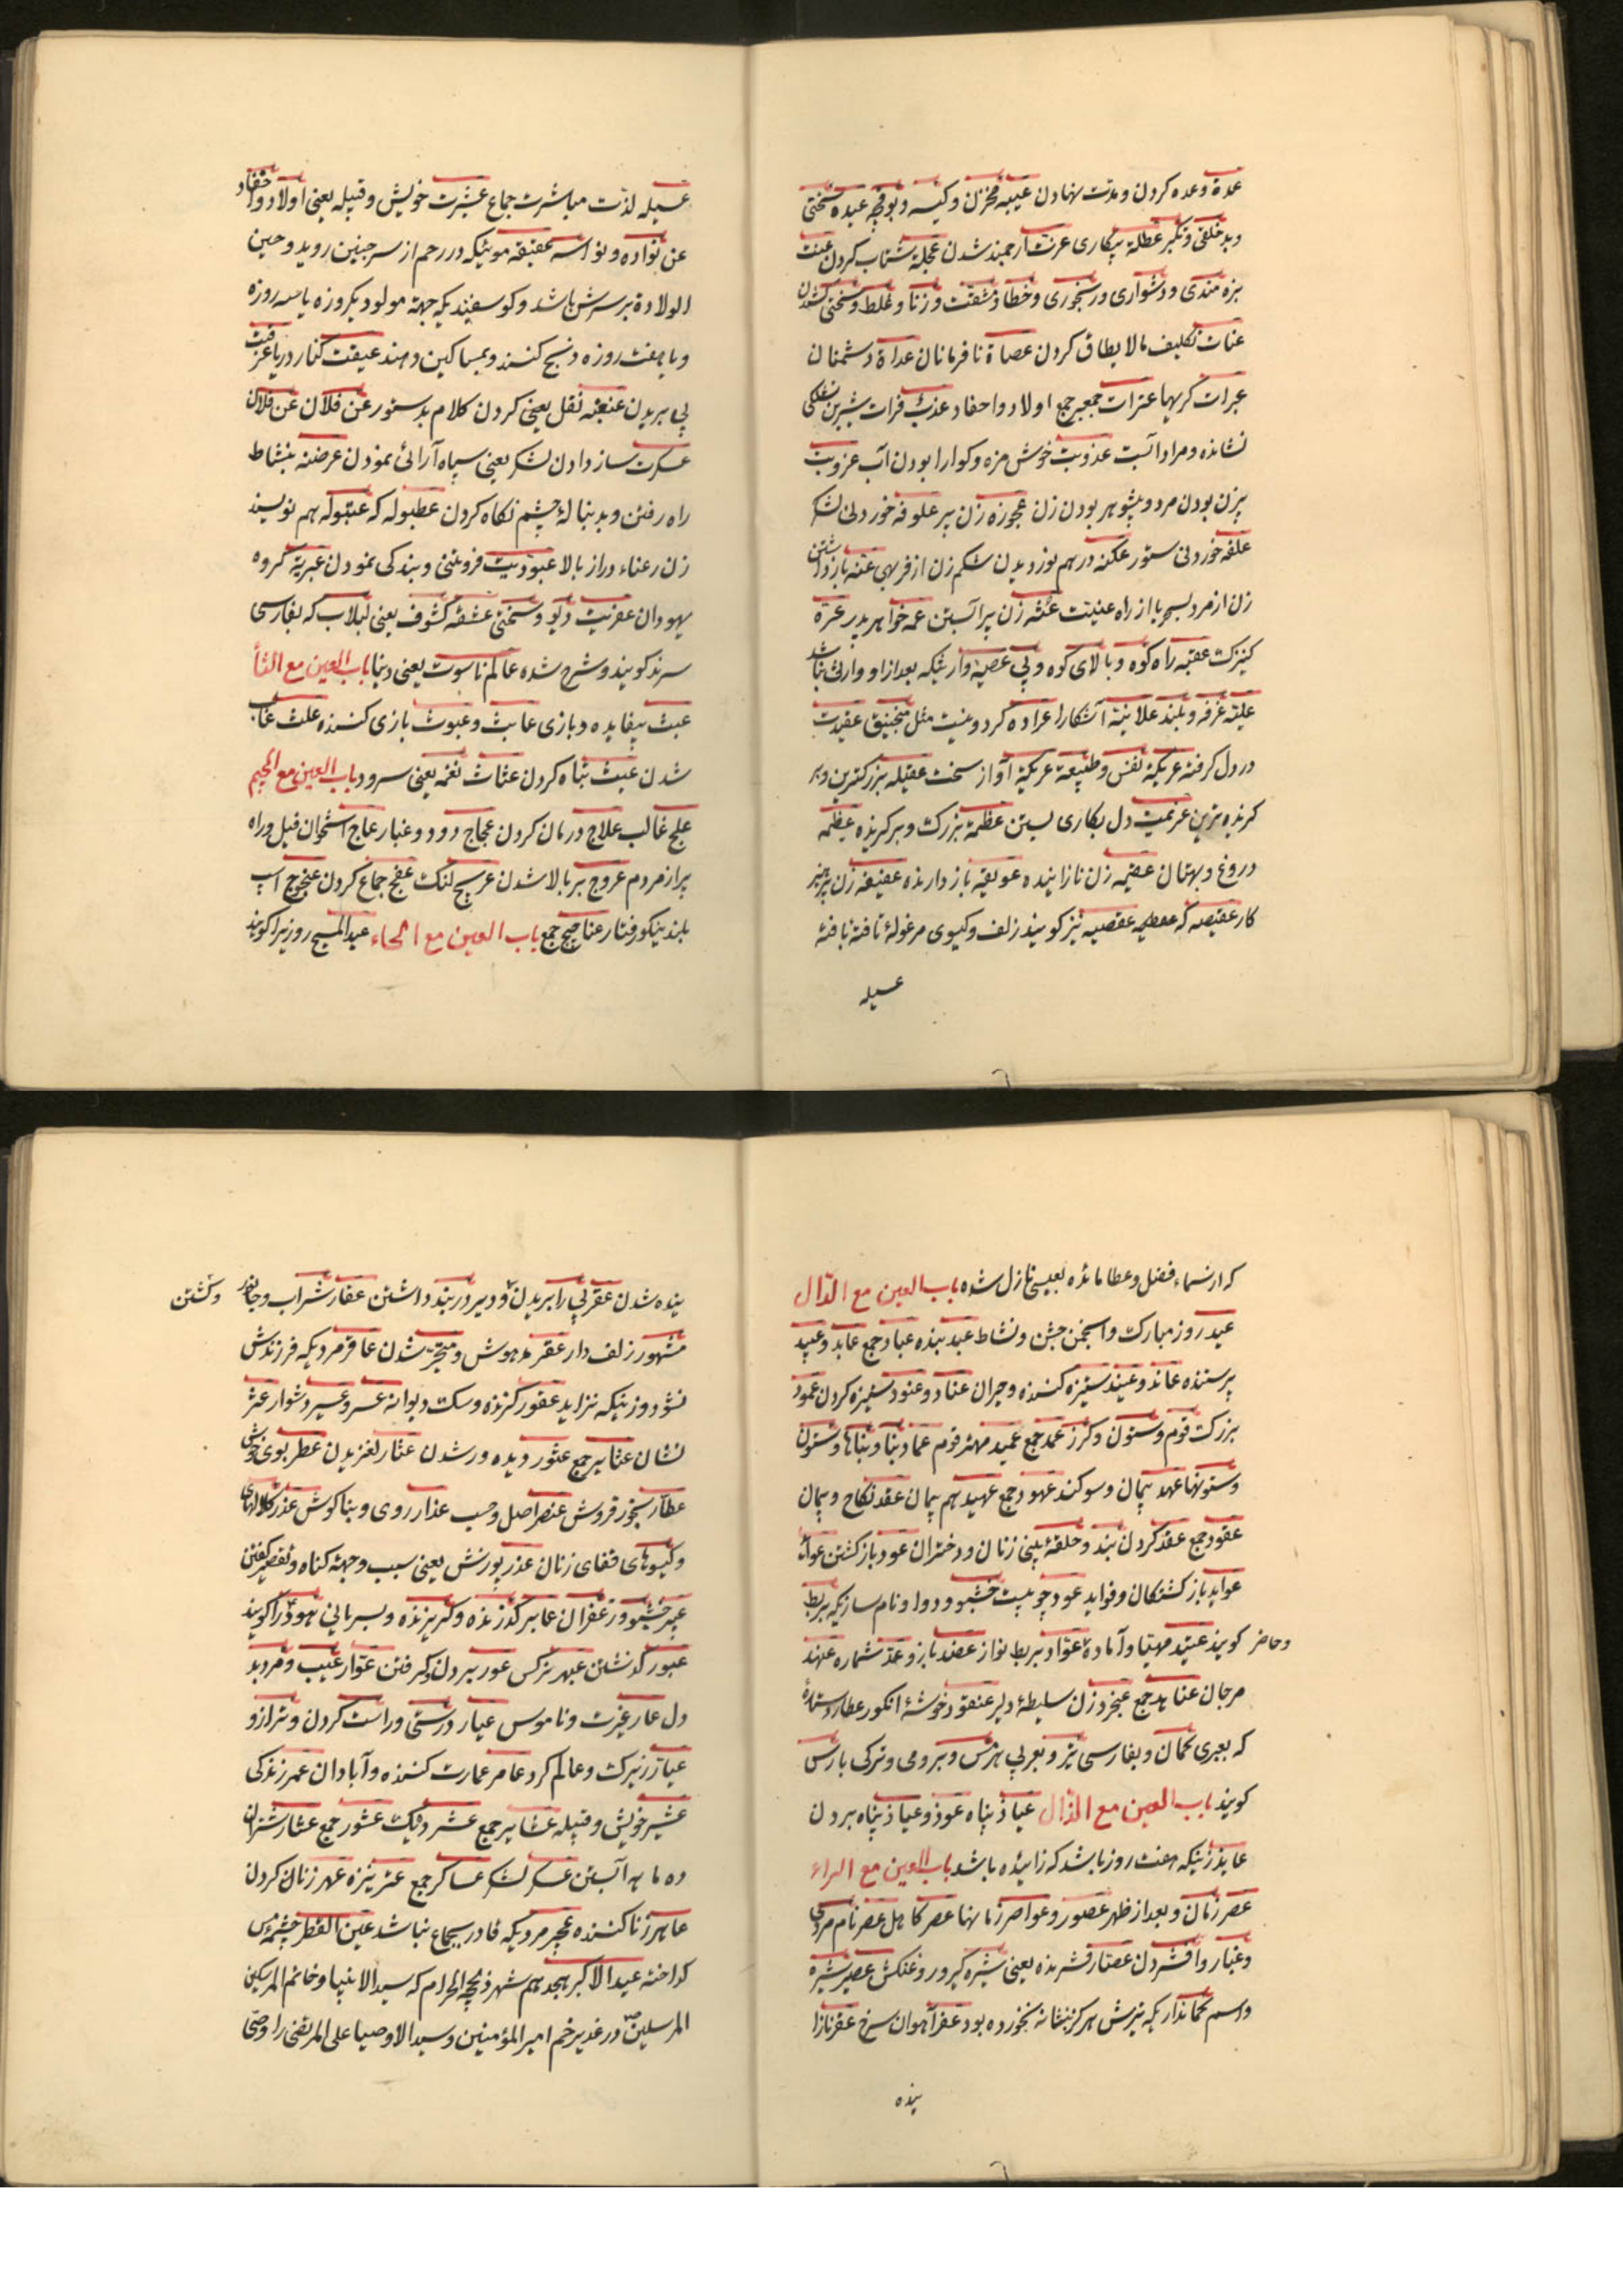 عدة وعده کردن ومدت نهادن عیبه مخزن وکیسه وبوقچه عیده سختی
وبدخلقی وتکبر عطلة بیکاری عزت ارجمند شدن عجلة شتاب کردن عنت
بزه مندی ودشواری ورنجوری وخطا ومشقت وزنا وغلط وسختی کشیدن
عنات تکلیف مالایطاق کردن عصاة نافرمانان عداة دشمنان
عبرات کریها عترات جمع اولاد واحفاد عذب فرات شیرین تشنکی
نشانده ومراد آبست عذوبت خوش مزه وکوارا بودن آب عزوبت
بیزن بودن مرد وبیشوهر بودن زن عجوزه زن پیر علوفه خوردنی لشکر
علفه خوردنی ستور عکنه درهم نوردیدن شکم زن از فربهی عنه بازداشتن
زن از مرد بسحر یا از راه عنینت عشه زن پیر آبستن عمه خواهر پدر عترة
کنیزک عقبه راه کوه وبالای کوه وپی عصبه وارثیکه بعد از او وارثی نباشد
علیته غرفه وبلند علانیة آشکارا عراده کردونیست مثل منجنیق عقیدت
در دل کرفته عریکة نفس وطبیعة عریکة آواز سخت عقیله بزرکترین وبر
کزیده ترین عزیمت دل بکاری بستن عظمة بزرک وبرکزیده عظیمه
دروغ وبهتان عقیمه زن نازاینده عویقه بازدارنده عفیفه زن پرهیز
کار عقیصه که عقصیه نیز کویند زلف وکیسوی مرغوله تافته بافته
عسیله
عسیله لذت مباشرت جماع عشیرت خویش وقبیله یعنی اولاد واحفاد
عن نواده ونواسه عقیقه موئیکه در رحم از سر جنین روید وحین
الولادة برسرش باشد وکوسفندیکه جهة مولود یکروزه یا سه روزه
ویا هفت روزه ذبح کنند وبمساکین دهند عیقت کنار دریا عرافت
پی بریدن عنعنه نقل یعنی کردن کلام بدستور عن فلان عن فلان
عسکرت ساز دادن لشکر یعنی سپاه آرائی نمودن عرضنه بنشاط
راه رفتن وبدنباله چشم نکاه کردن عطبوله که عبتوله هم نویسند
زن رعناء دراز بالا عبودیت فروتنی وبندکی نمودن عبریة کروه
یهودان عفریت دیو وسختی عشقه کشوف یعنی لبلاب که بفارسی
سرند کویند وشرح شده عالم ناسوت یعنی دنیا باب العین مع الثأ
عبث بیفایده وبازی عابث وعبوث بازی کننده علث غالب
شدن عیث تباه کردن عثاث نغمه یعنی سرود باب العین مع الجیم
علج غالب علاج درمان کردن عجاج دود وغبار عاج استخوان فیل وراه
پر از مردم عروج بر بالا شدن عریج لنک عفج جماع کردن عنجوج اسب
بلند نیکو رفتار عناجیج جمع باب العین مع الحاء عید المسیح روزیرا کویند
که از سماء فضل وعطا مائده بعیسی نازل شده باب العین مع الدال
عید روز مبارک وانجمن جشن ونشاط عبد بنده عباد جمع عابد وعبید
پرستنده عاند وعنید ستیزه کننده وحیران عناد وعنود ستیزه کردن عمود
بزرک قوم وستون وکرز عمد جمع عمید مهتر قوم عماد بنا وبناها وستون
وستونها عهد پیمان وسوکند عهود جمع عهید هم پیمان عقد نکاح وپیمان
عقود جمع عقد کردن بند وحلقه بینی زنان ودختران عود بازکشتن عوائد
عواید بازکشتکان وفواید عود چوبیست خشبو ودوا ونام سازیکه بربط
وحاضر
کویند عتید مهیا وآماده عواد بربط نواز عضد بازو عد شماره عهند
مرجان عناهد جمع عنجرد زن سلیطه دلیر عنقود خوشه انکور عطارد ستاره
که بعبری کمان وبفارسی تیر وبعربی هرمس وبرومی وترکی بارس
کویند باب العین مع الذال عیاذ پناه عوذ وعیاذ پناه بردن
عایذ زنیکه هفت روز باشد که زائیده باشد باب العین مع الراء
عصر زمان وبعد از ظهر عصور وعواصر زمانها عصر کاهل عصر نام مردی
وغبار وافشردن عصار فشرنده یعنی شیره کیر وروغنکش عصیر شیره
واسم کمانداریکه تیرش هرکز بنشانه نخورده بود عفر آهوان سرخ عقر نازا
ینده
ینده شدن عقر پی را بریدن ودیر در بند داشتن عقار شراب وجانور
وکشتن
مشهور زلف دار عقر مدهوش ومتحیر شدن عاقر مردیکه فرزندش
نشود وزنیکه نزاید عقور کزنده وسک دیوانه عسر وعسیر دشوار عثر
نشان عثایر جمع عثور دیده ور شدن عثار لغزیدن عطر بوی خوش
عطار بخور فروش عنصر اصل وحسب عذار روی وبناکوش عذر کلالهای
وکیسوهای قفای زنان عذر پوزش یعنی سبب وجهة کناه وتقصیر کفتن
عبیر خشبو وزعفران عابر کذرنده وکریزنده وبسریانی هود را کویند
عبور کذشتن عبهر نرکس عور بردن وکرفتن عوار عیب ومرد بد
دل عار غیرت وناموس عیار درستی وراست کردن وترازو
عیار زیرک وعالم کرد عامر عمارت کننده وآبادان عمر زندکی
عشیر خویش وقبیله عشایر جمع عشر ده یک عشور جمع عشار شتران
ده ماهه آبستن عسکر لشکر عساکر جمع عتر نیزه عهر زنان کردن
عاهر زنا کننده عجیر مردیکه قادر بجماع نباشد عین القطر چشمه مس
کداخته عید الاکبر هجدهم شهر ذیحجه الحرام که سید الانبیا وخاتم المرسلین
المرسلین در غدیر خم امیر المؤمنین وسید الاوصیا علی المرتضی را وصی